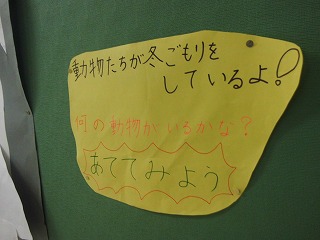 動物たちが冬ごもりを
しているよ!
何の動物がいるかな?
あててみよう